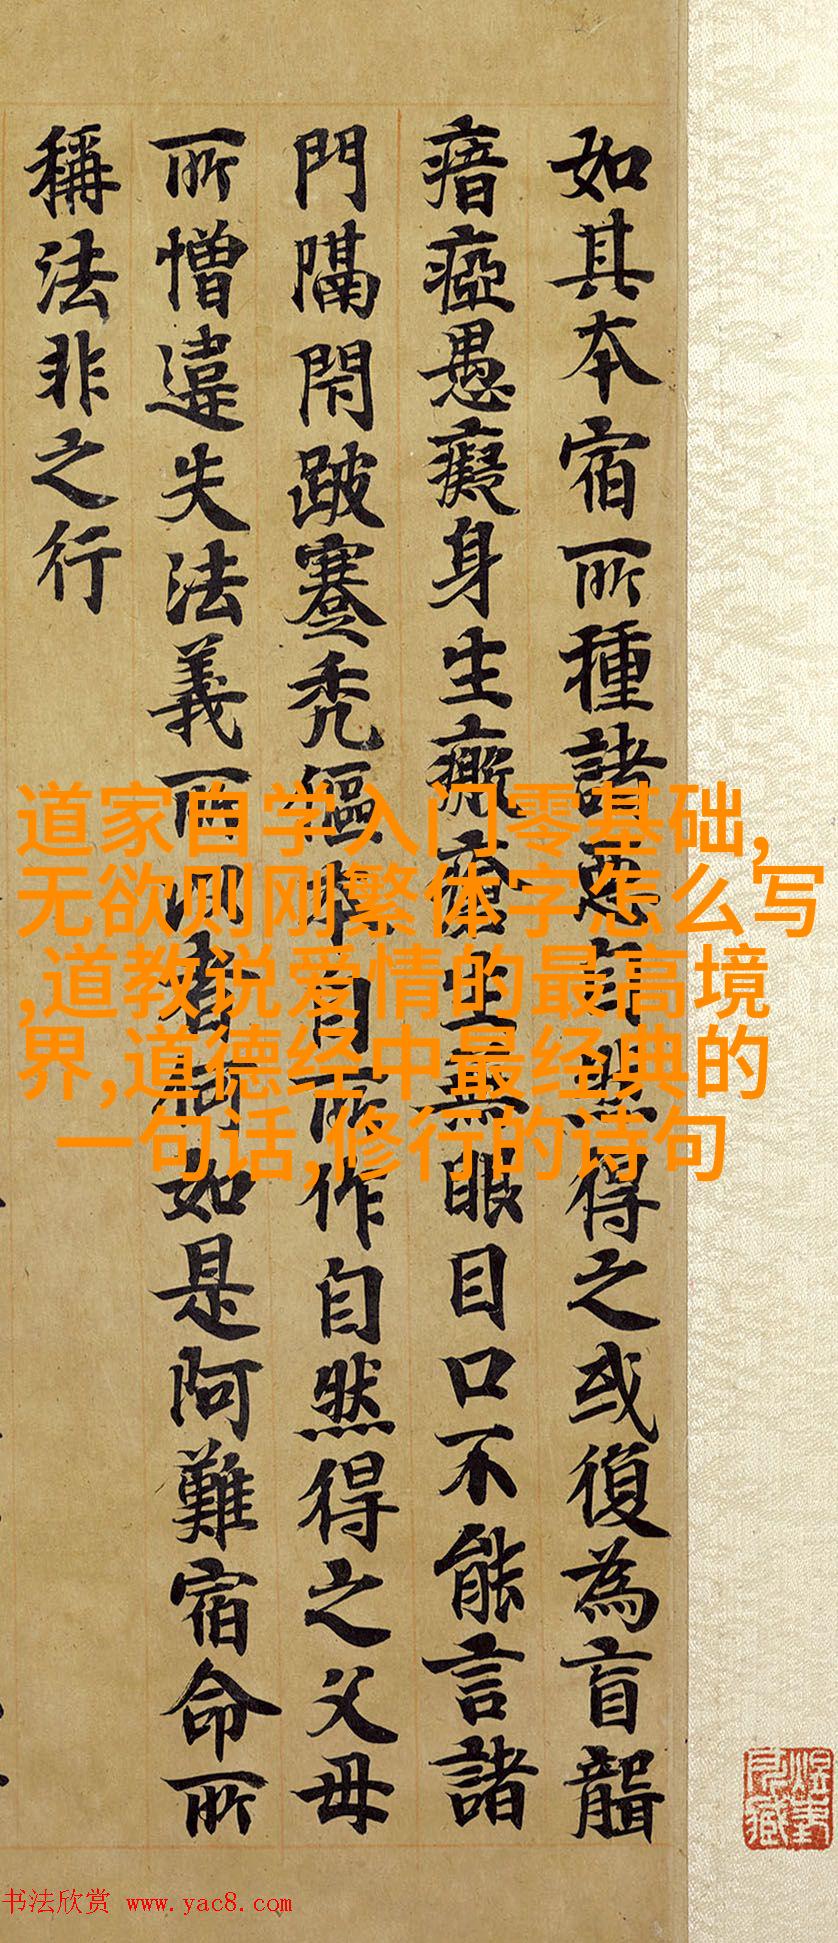 如其本宿所種諸惡自然得之或復為盲聾
瘖瘂愚癡身生瘡生無眼目口不能言諸
門隔閇跛蹇秃傴本自所作自然得之父母
所憎違失法義所者何如是阿難宿命所
稱法非之行
道家自学入门零基础,
无欲则刚繁体字怎么写
,道教说爱情的最高境
界,道德经中最经典的
一句话,修行的诗句
书法欣赏 www.yac8.com